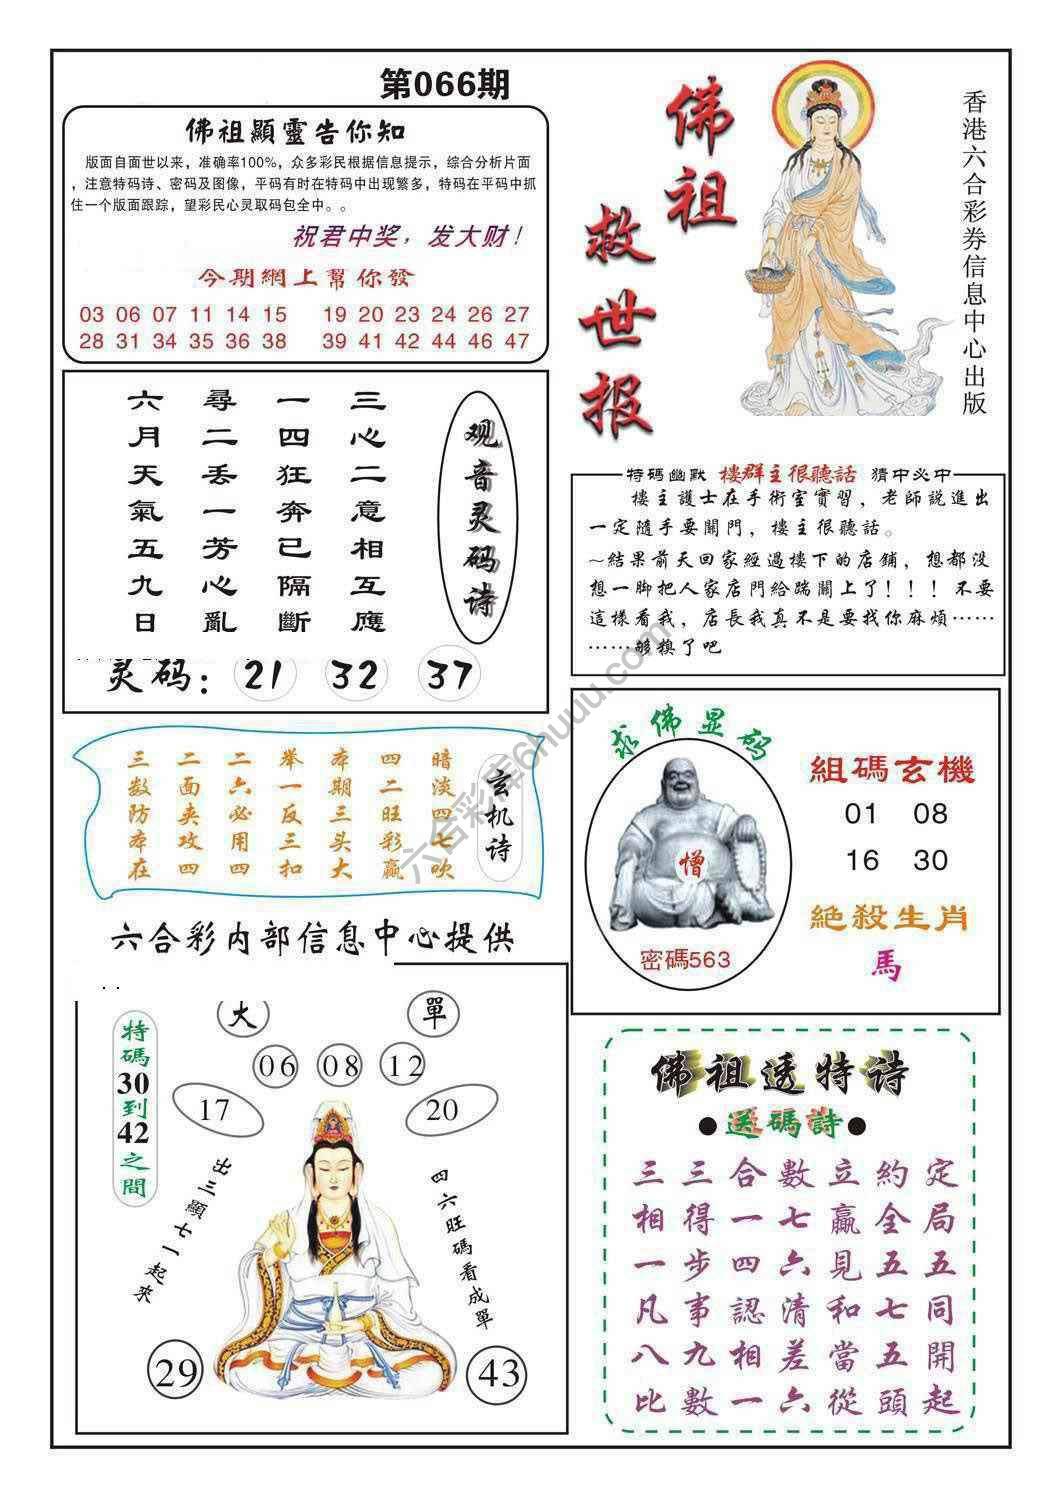 第066期
佛祖顯靈告你知
版面自面世以来，准确率100%，众多彩民根据信息提示，综合分析片面
，注意特码诗、密码及图像，平码有时在特码中出现繁多，特码在平码中抓
住一个版面跟踪，望彩民心灵取码包全中。。
祝君中奖，发大财！
今期網上幫你發
03 06 07 11 14 15 19 20 23 24 26 27
28 31 34 35 36 38 39 41 42 44 46 47
佛祖
救世报
香港六合彩券信息中心出版
观音灵码诗
三心二意相互應
一四狂奔已隔斷
尋二丢一芳心亂
六月天氣五九日
灵码：21 32 37
特碼幽默 樓群主很聽話 猜中必中
樓主護士在手術室實習，老師説進出
一定隨手要關門，樓主很聽話。
～結果前天回家經過樓下的店鋪，想都没
想一脚把人家店門給踹關上了！！！不要
這樣看我，店長我真不是要找你麻煩……
……够糗了吧
玄机诗
暗淡四七吹
四二旺彩赢
本期三头大
举一反三扣
二六必用四
二面夹攻四
三数防本在
六合彩内部信息中心提供
求佛显码
僧
密碼563
組碼玄機
01 08
16 30
絶殺生肖
馬
特碼30到42之間
大
單
06 08 12
17
20
出三顯七一起來
四六旺碼看成單
29
43
佛祖透特诗
●送碼詩●
三三合數立約定
相得一七贏全局
一步四六見五五
凡事認清和七同
八九相差當五開
比數一六從頭起
六合彩库6huuu.com